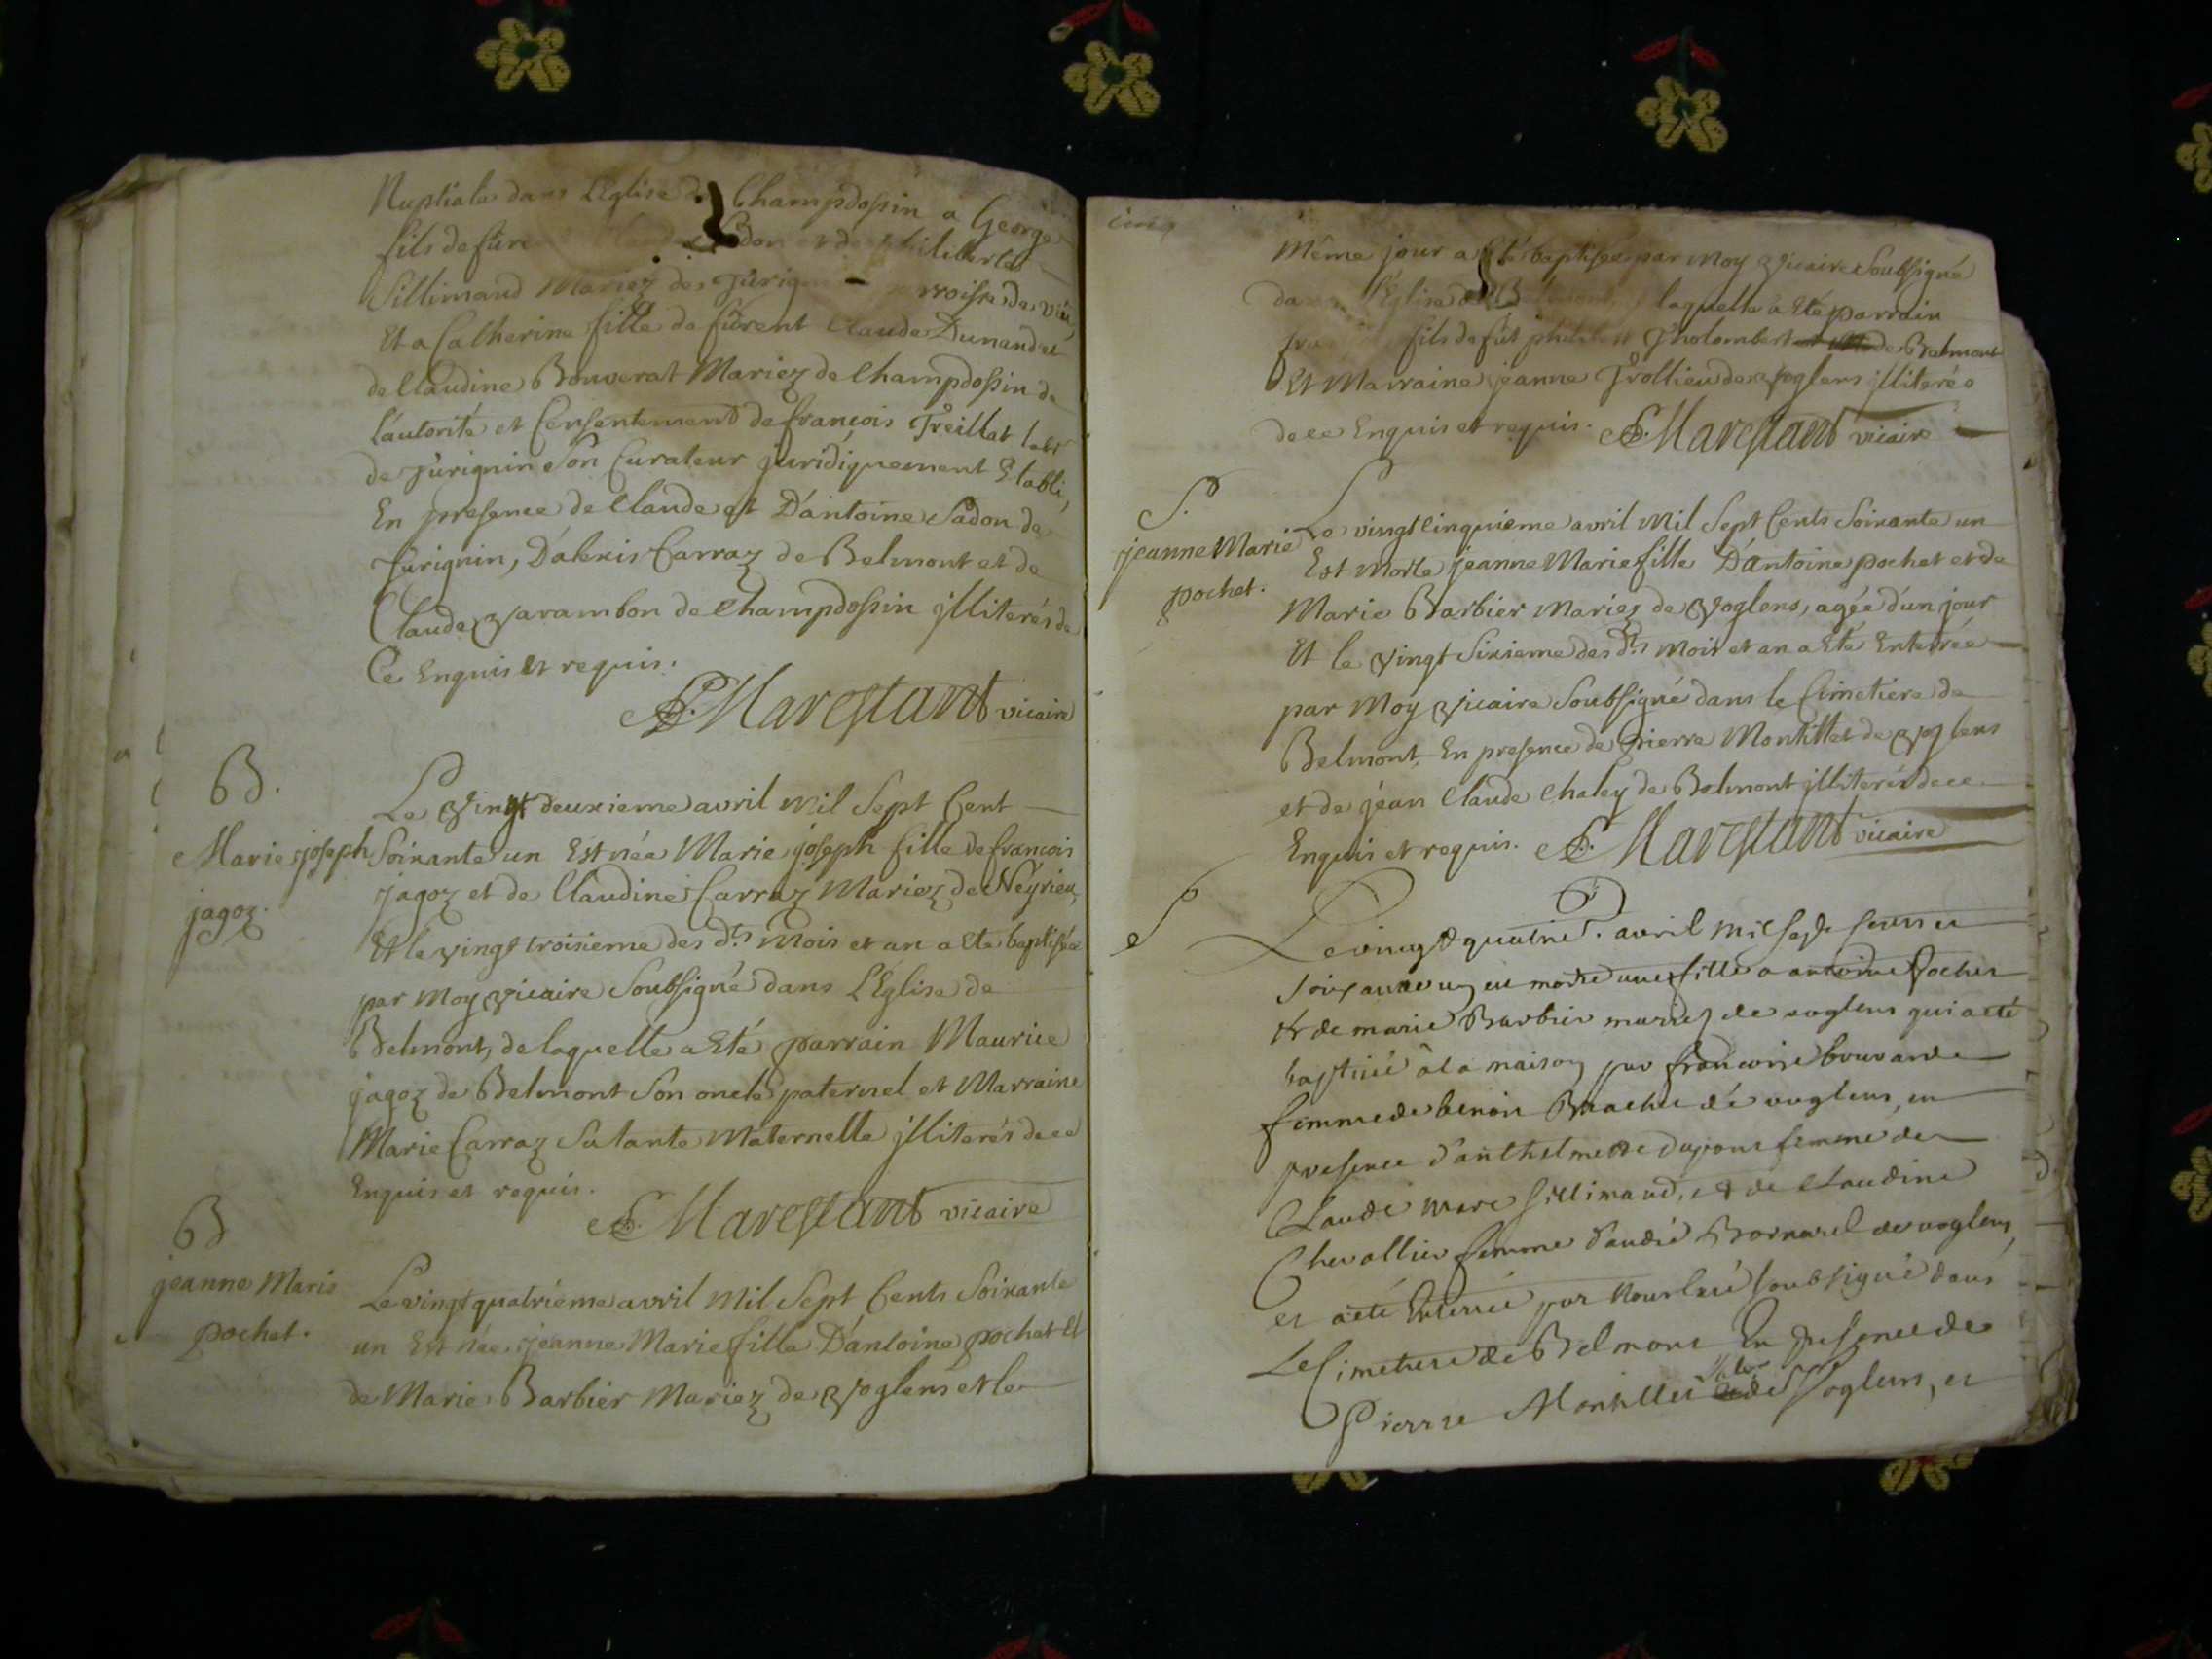 Nuptiale dans L'Eglise de Champdossin a George
fils de fürent Sadon et de philiberte
Sillimand Mariez de Jurignin parroisse de vieu
Et a Catherine fille de fürent Claude Dunand et
de Claudine Bouverat Mariez de Champdossin de
l'autorité et Consentement de françois Treillat labr
de Jurignin Son Curateur juridiquement Etabli,
En presence de Claude et D'antoine Sadon de
Jurignin, D'alexis Carraz de Belmont et de
Claude Varambon de Champdossin jlliterés de
Ce Enquis et requis.
Marestant vicaire
B.
Marie joseph
jagoz.
Le Vingt deuxieme avril Mil Sept Cent
Soixante un Est née Marie joseph fille de francois
jagoz et de Claudine Carraz Mariez de Neyrieu,
Et le vingt troisieme des dts Mois et an a Eté baptisée
par Moy Vicaire Soubsigné dans L'Eglise de
Belmont, de laquelle a Eté parrain Maurice
jagoz de Belmont Son oncle paternel et Marraine
Marie Carraz Sa tante Maternelle jlliterés de ce
Enquis et requis.
Marestant vicaire
B
jeanne Marie
pochet.
Le vingt quatriéme avril Mil Sept Cents Soixante
un Est née jeanne Marie fille D'antoine pochet Et
de Marie Barbier Mariez de Voglens et le
cinq
Même jour a Eté baptisée par Moy Vicaire Soubsigné
dans l'Eglise de Belmont, laquelle a Eté parrain
fils de füt Tholombert de Belmont
Et Marraine jeanne Trollieu de Voglens jlliterés
de ce Enquis et requis. Marestant vicaire
S.
jeanne Marie
pochet.
Le vingt Cinquieme avril Mil Sept Cents Soixante un
Est Morte jeanne Marie fille D'antoine pochet et de
Marie Barbier Mariez de Voglens, agée d'un jour
Et le Vingt Sixieme des dts Mois et an a Eté Enterrée
par Moy Vicaire Soubsigné dans le Cimetiere de
Belmont, En presence de pierre Montillet de Voglens
et de jean Claude Chaley de Belmont jlliterés de ce
Enquis et requis. Marestant vicaire
S
Le vingt quatrie. avril mil sept cents et
soixante un est morte une fille a antoine Pochet
et de marie Barbier marriez de voglens qui a eté
baptisée a la maison par francoise bouvarde
femme de benoit de voglens, en
presence d'anthelmette dupont femme de
Claude marc sillimand, et de Claudine
Chevallier femme d'andré Bornarel de voglens,
et a eté Enterrée par Nous Curé soubsigné dans
Le Cimetiere de Belmont En presence de
Pierre Montillet de Voglens, et